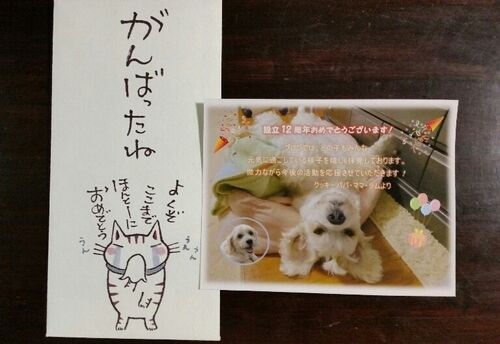 がんばったね
よくぞ
ここまで
ほんとーに
おめでとう
うん
うん
うん
設立12周年おめでとうございます!
ブログでは、どの子もみんな
元気に過ごしている様子を嬉しく拝見しております。
微力ながら今後の活動を応援させていただきます!
クッキーパパ・ママ・ラムより